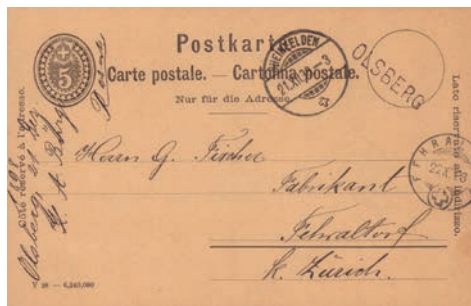 Postkarte.
Carte postale. — Cartolina postale.
Nur für die Adresse.
5
RHEINFELDEN
OLSBERG
Côté réservé à l'adresse.
Lato riservato all'indirizzo.
Herrn G. Fischer
Fabrikant
Fehraltorf
k. Zürich.
Olsberg
FEHRAL